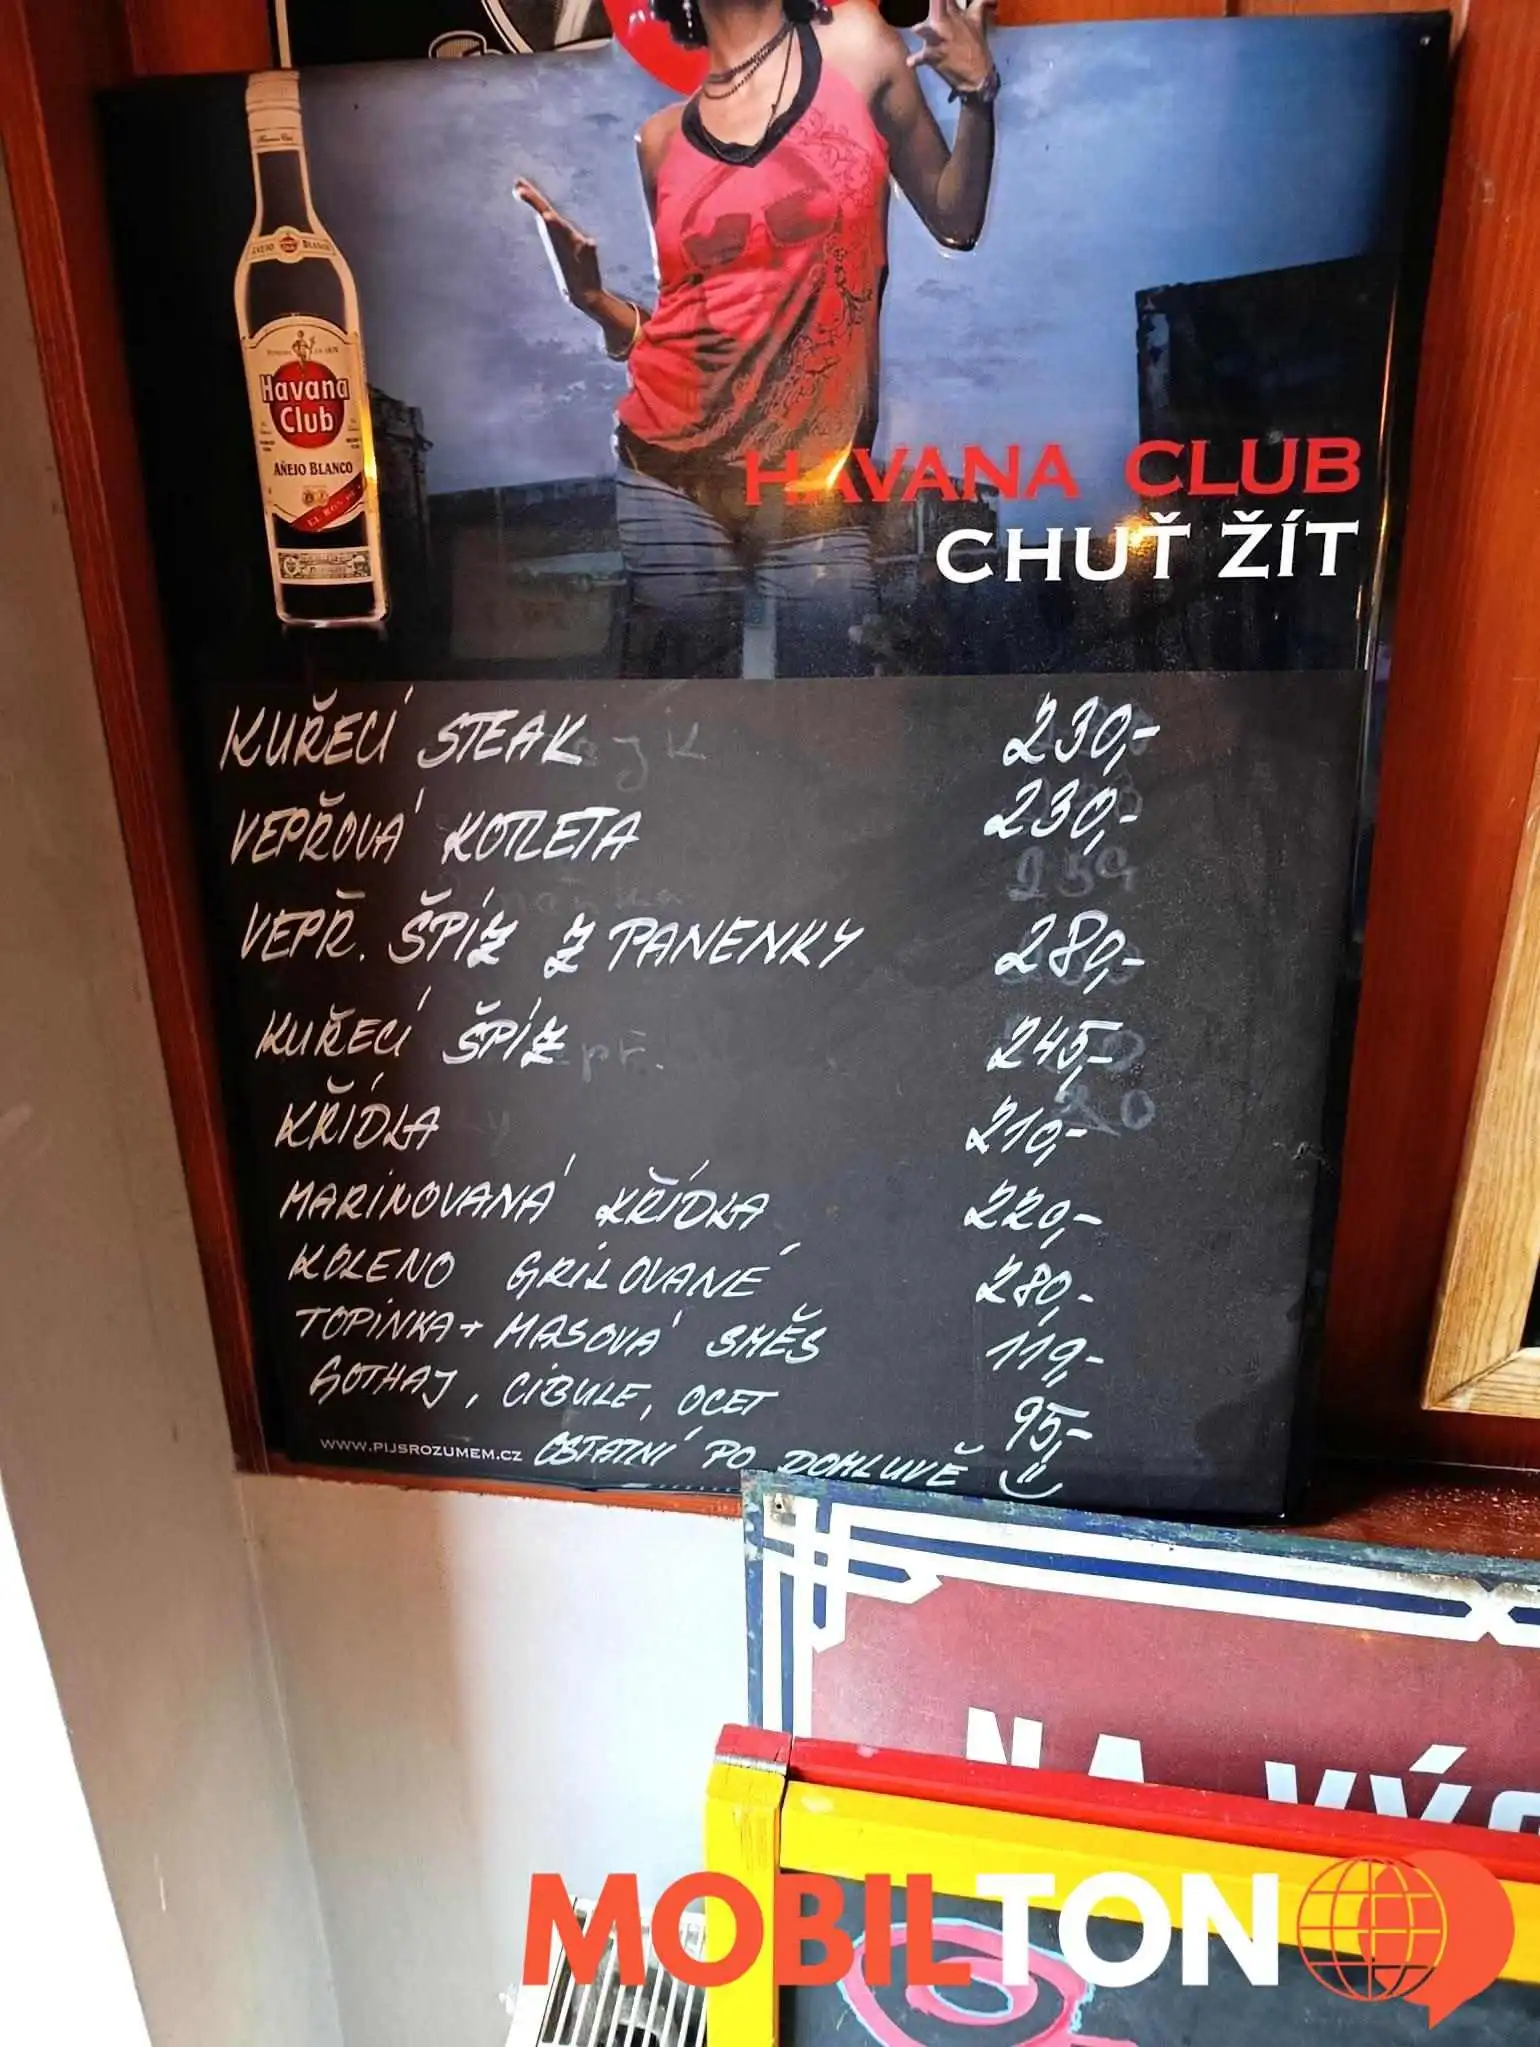 Havana
Club
AÑEJO BLANCO
HAVANA CLUB
CHUŤ ŽÍT
KUŘECÍ STEAK 230,-
VEPŘOVÁ KOTLETA 230,-
VEPŘ. ŠPÍZ Z PANENKY 280,-
KUŘECÍ ŠPÍZ 245,-
KŘÍDLA 210,-
MARINOVANÁ KŘÍDLA 220,-
KOLENO GRILOVANÉ 280,-
TOPINKA + MASOVÁ SMĚS 119,-
GOTHAJ, CIBULE, OCET 95,-
WWW.PIJSROZUMEM.CZ OSTATNÍ PO DOMLUVĚ
NA
MOBILTON